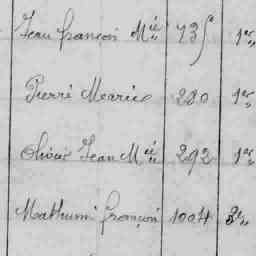 Jean françois Mie 735 1er
Pierre Marie 280 1er
Olivier Jean Mie 292 1er
Mathurin françois 1004 2e